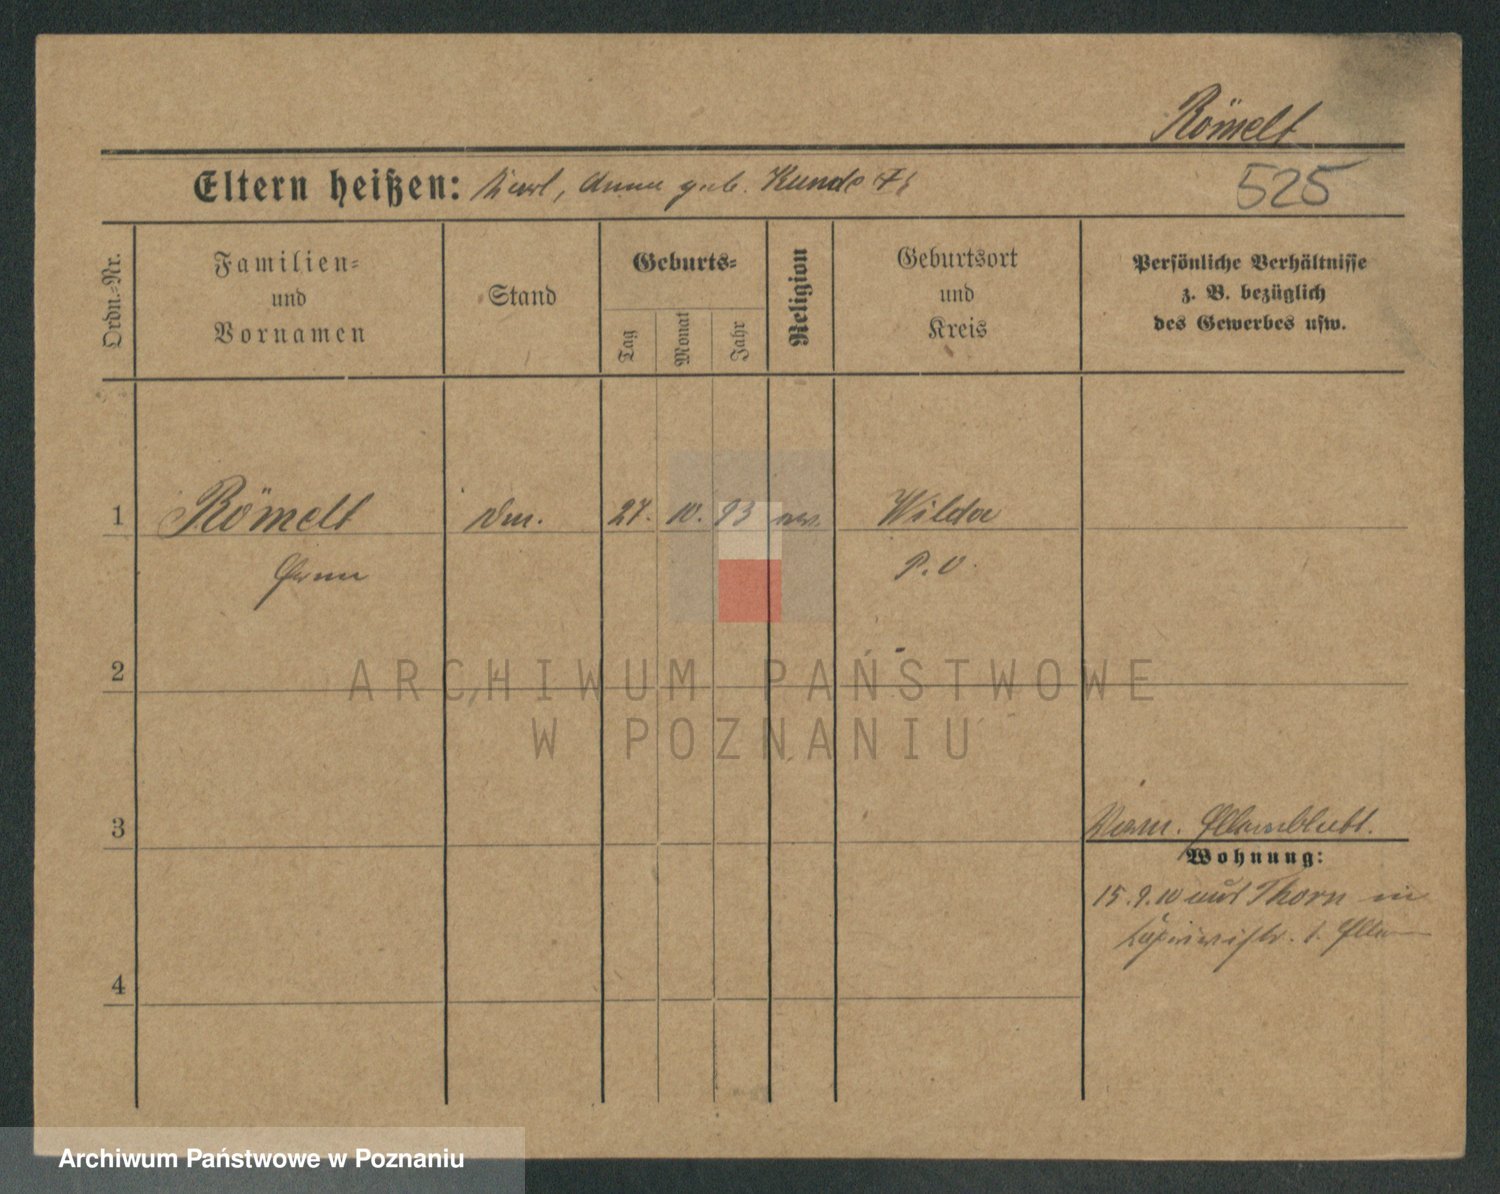 Römelt
Eltern heißen: Karl, Anna geb. Kunde
525
Ordn.-Nr.
Familien-
und
Vornamen
Stand
Geburts-
Tag
Monat
Jahr
Religion
Geburtsort
und
Kreis
Persönliche Verhältnisse
z. B. bezüglich
des Gewerbes usw.
1 Römelt 27. 10. 93 Wilda
P. O.
2
ARCHIWUM PAŃSTWOWE
W POZNANIU
3
Wohnung:
15. 9. 10 aus Thorn in
4
Archiwum Państwowe w Poznaniu